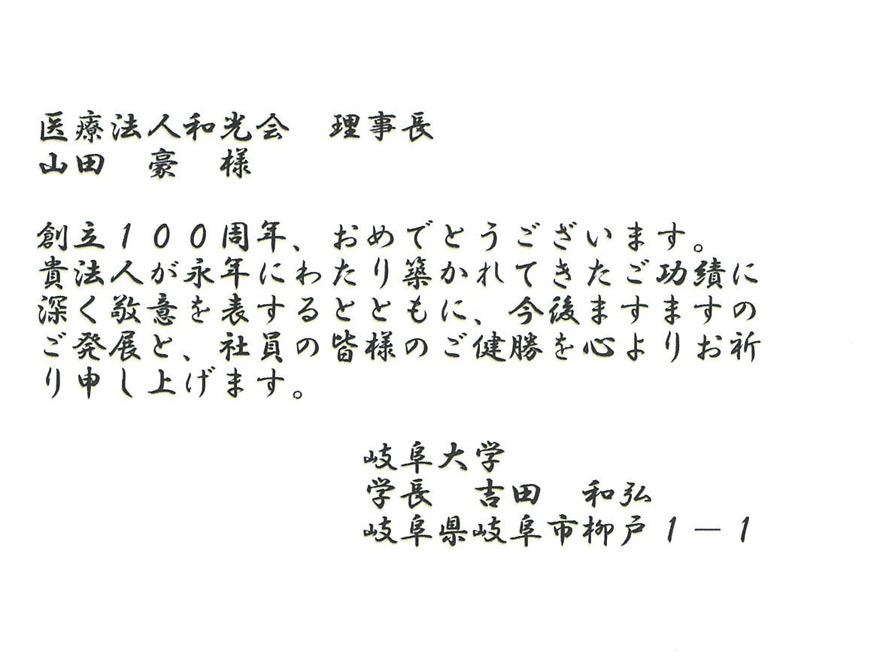 医療法人和光会　理事長
山田　豪　様
創立１００周年、おめでとうございます。
貴法人が永年にわたり築かれてきたご功績に
深く敬意を表するとともに、今後ますますの
ご発展と、社員の皆様のご健勝を心よりお祈
り申し上げます。
岐阜大学
学長　吉田　和弘
岐阜県岐阜市柳戸１－１